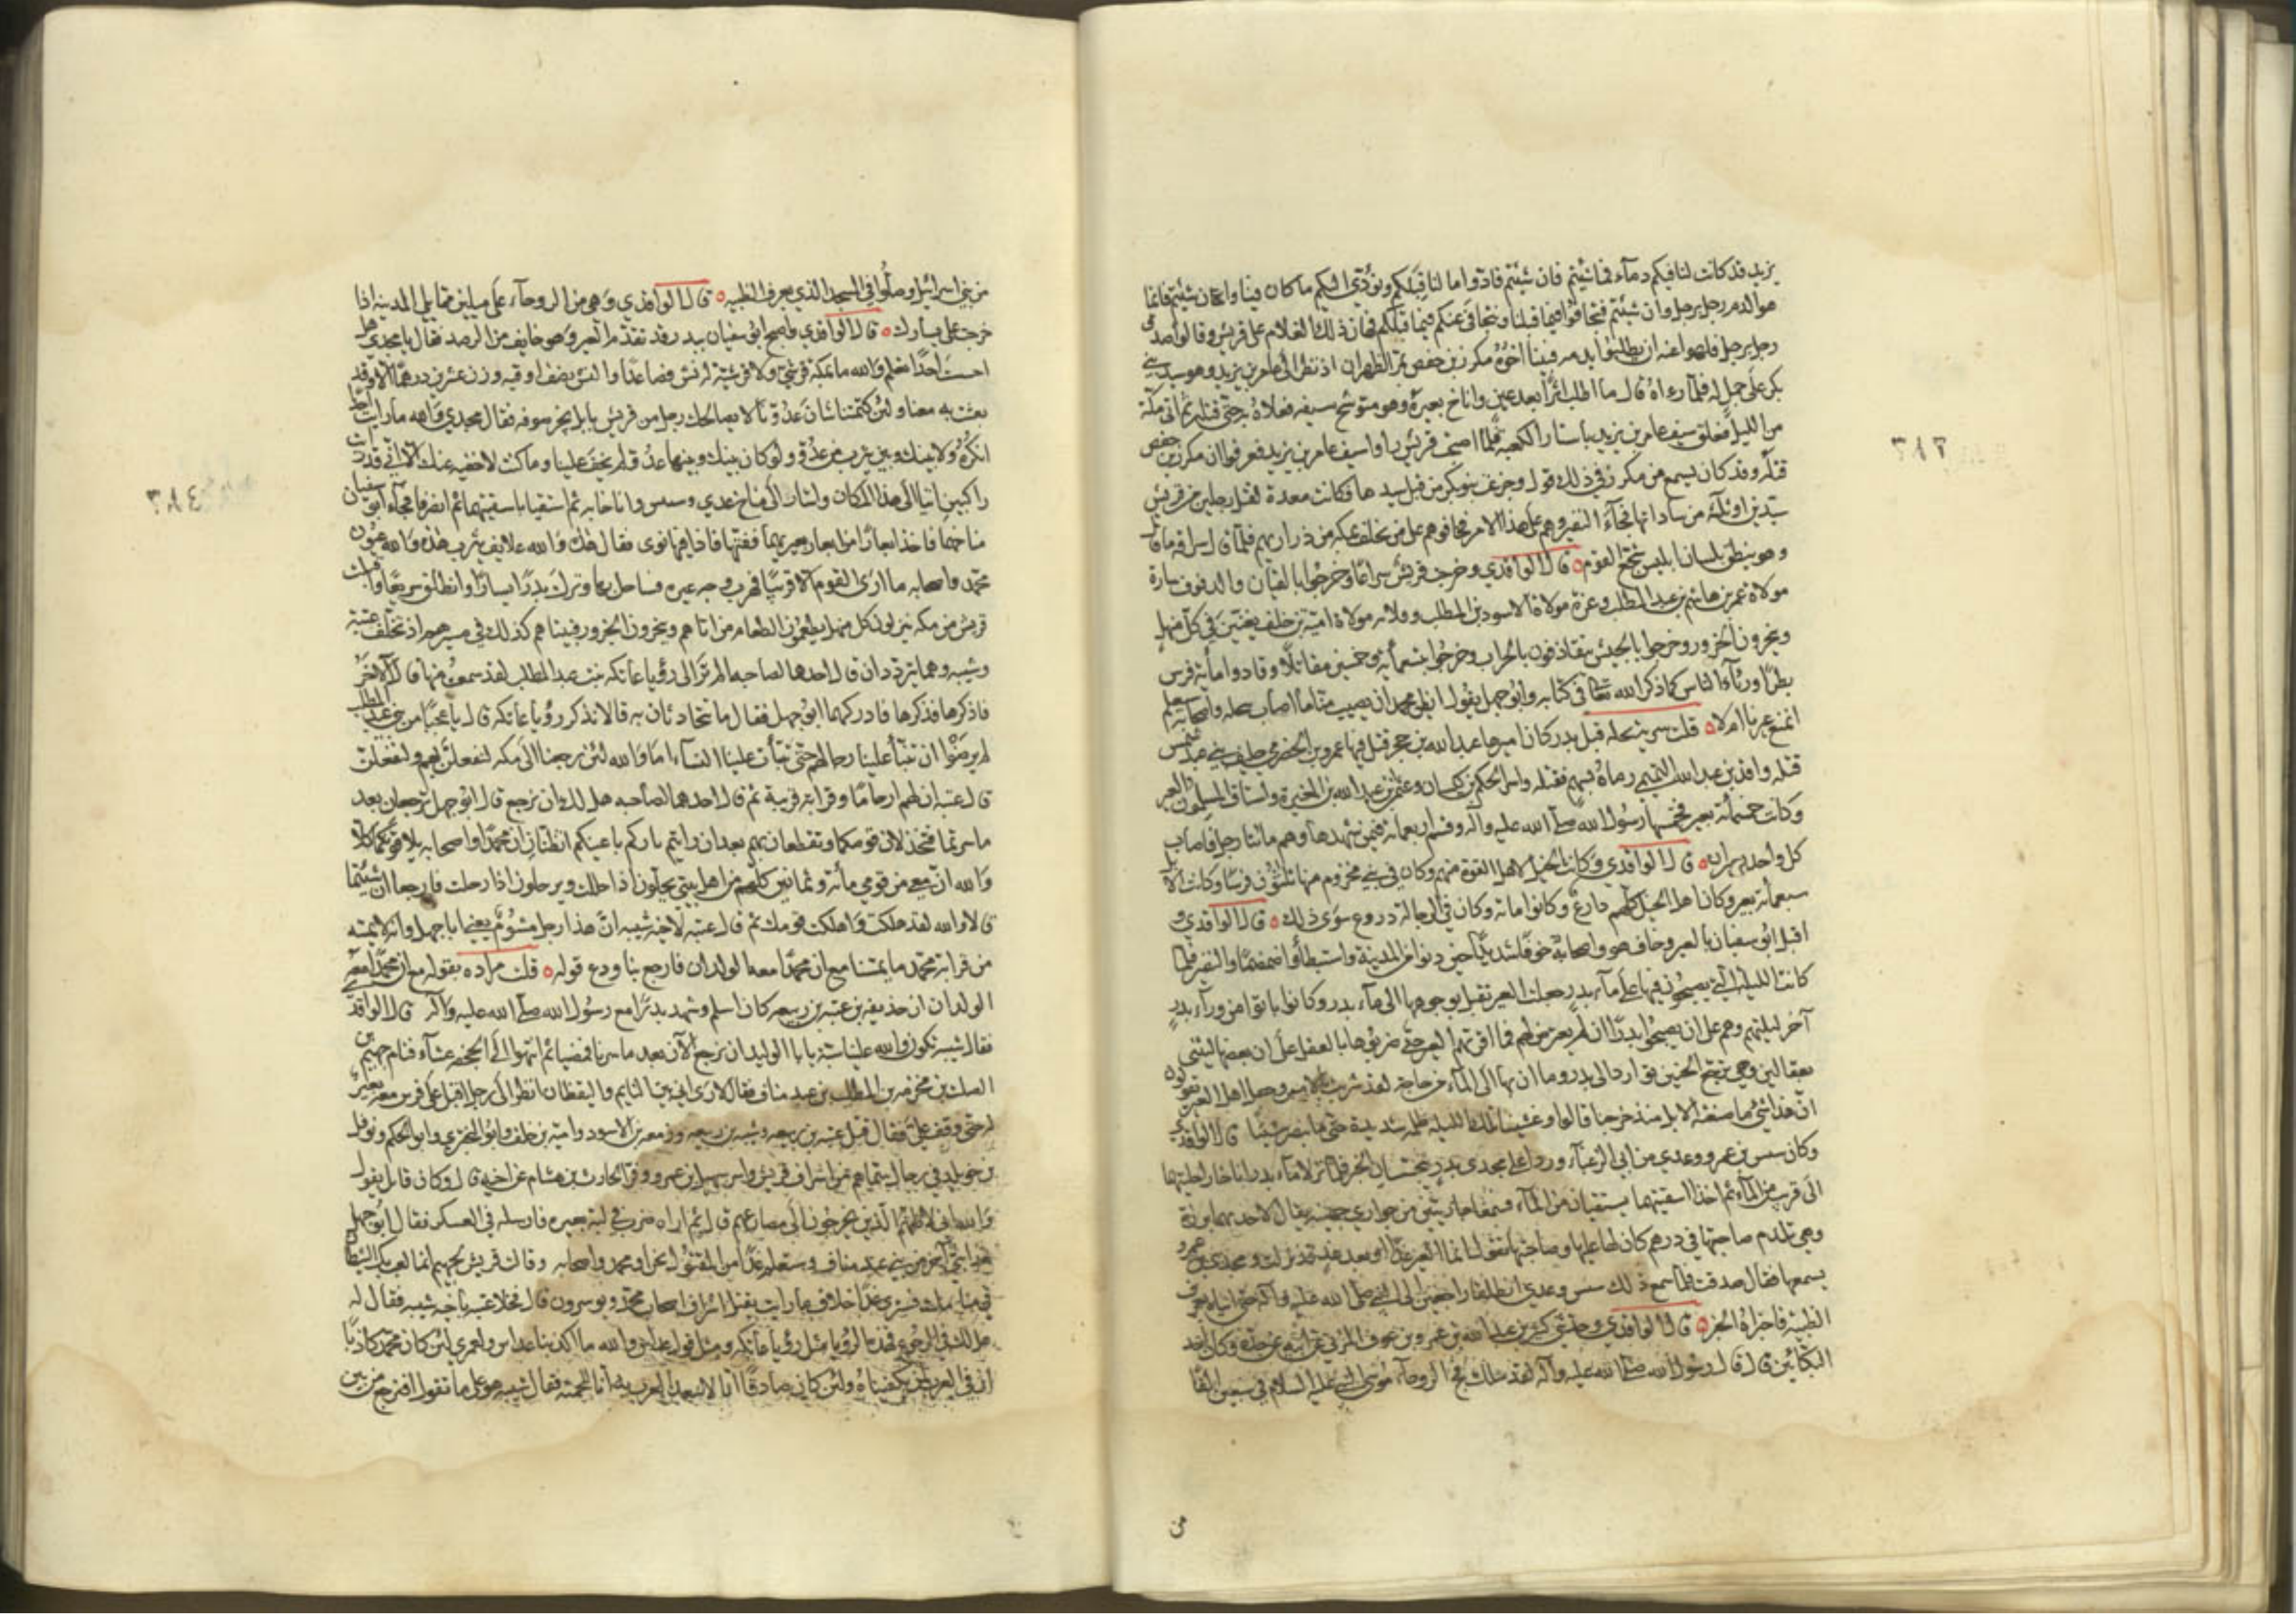 يزيد قد كانت لنا فيكم دماء فما شئتم فان شئتم فادوا ما لنا قبلكم ونؤدي اليكم ما كان فينا وان شئتم فانما
هو الدم رجل برجل وان شئتم فتجافوا فيما قبلنا ونتجافى عنكم فيما قبلكم فهان ذلك الغلام على قريش وقالوا صدق
رجل برجل فلهوا عنه ان يطلبوا بدمه فبينا اخوه مكرز بن حفص بمر الظهران اذ نظر الى عامر بن يزيد وهو سيد بني
بكر على جمل له فلما رءاه قال ما اطلب اثرا بعد عين واناخ بعيره وهو متوشح سيفه فعلاه به حتى قتله ثم اتى مكة
من الليل فعلق سيف عامر بن يزيد باستار الكعبه فلما اصبحت قريش راوا سيف عامر بن يزيد فعرفوا ان مكرز بن حفص
قتله وقد كان يسمع من مكرز في ذلك قول وجزعت بنو بكر من قتل سيدها فكانت معدة لقتل رجلين من قريش
سيدين او ثلثة من ساداتها فجاء النفير وهم على هذا الامر فخافوهم على من تخلف بمكه من ذراريهم فلما قال سراقه ما قال
وهو ينطق بلسان ابليس شجع القوم ٥ قال الواقدي وخرجت قريش سراعا وخرجوا بالقيان والدفوف سارة
مولاة عمرو بن هاشم بن عبد المطلب وعزة مولاة الاسود بن المطلب وفلانه مولاة امية بن خلف يغنين في كل منهل
وينحرون الجزور وخرجوا بالجيش يتقاذفون بالحراب وخرجوا بتسعمائة وخمسين مقاتلا وقادوا مائة فرس
بطرا ورئاء الناس كما ذكر الله تعالى في كتابه وابو جهل يقول ايظن محمد ان يصيب منا ما اصاب بنخله واصحابه سيعلم
انمنع عيرنا ام لا ٥ قلت سرية نخله قبل بدر كان اميرها عبد الله بن جحش قتل فيها عمرو بن الحضرمي حليف بني عبد شمس
قتله واقد بن عبد الله التميمي رماه بسهم فقتله واسر الحكم بن كيسان وعثمن بن عبد الله بن المغيرة واستاق المسلمون العير
وكانت خمسمائة بعير فخمسها رسول الله صلى الله عليه وآله وقسم اربعمائة فيمن شهدها وهم مائتا رجل فاصاب
كل واحد بعيران ٥ قال الواقدي وكانت الخيل لاهل القوة منهم وكان في بني مخزوم منها ثلثون فرسا وكانت الابل
سبعمائة بعير وكان اهل الخيل كلهم دارع وكانوا مائة وكان في الرجالة دروع سوى ذلك ٥ قال الواقدي و
اقبل ابو سفيان بالعير وخاف هو واصحابه خوفا شديدا حين دنوا من المدينة واستبطأوا ضمضما والنفير فلما
كانت الليلة التي يصبحون فيها على ماء بدر جعلت العير تقبل بوجوهها الى ماء بدر وكانوا باتوا من وراء بدر
آخر ليلتهم وهم على ان يصبحوا بدرا ان لم يعترض لهم فما اقرتهم العير حتى ضربوها بالعقل على ان بعضها ليثنى
بعقالين وهي ترجع الحنين تواردا الى بدر وما ان بها الى الماء من حاجة لقد شربت بالامس وجعل اهل العير يقولون
ان هذا شئ ما صنعته الابل منذ خرجنا قالوا وغشيتنا تلك الليله ظلمه شديدة حتى ما نبصر شيئا قال الواقدي
وكان بسبس بن عمرو وعدي بن ابي الزغباء وردا على مجدي بدر يتحسسان الخبر فلما نزلا ماء بدر اناخا راحلتيهما
الى قريب من الماء ثم اخذا اسقيتهما يستقيان من الماء فسمعا جاريتين من جواري جهينه يقال لاحديهما برزة
وهي تلزم صاحبتها في درهم كان لها عليها وصاحبتها تقول انما العير غدا او بعد غد قد نزلت ومجدي بن عمرو
يسمعها فقال صدقت فلما سمع ذلك بسبس وعدي انطلقا راجعين الى النبي صلى الله عليه وآله حتى اتياه بعرق
الظبية فاخبراه الخبر ٥ قال الواقدي وحدثني كثير بن عبد الله بن عمرو بن عوف المزني عن ابيه عن جده وكان احد
البكائين قال قال رسول الله صلى الله عليه وآله لقد سلك فج الروحاء موسى النبي عليه السلام في سبعين الفا
من
٣٨٢
من بني اسرائيل وصلوا في المسجد الذي بعرق الظبيه ٥ قال الواقدي وهي من الروحاء على ميلين مما يلي المدينه اذا
خرجت على يسارك ٥ قال الواقدي واصبح ابو سفيان ببدر قد تقدم العير وهو خايف من الرصد فقال يا مجدي هل
احسست احدا تعلم والله ما بمكة قرشي ولا قرشية له نش فصاعدا والنش نصف اوقيه وزن عشرين درهما الا وقد
بعث به معنا ولئن كتمتنا شان عدونا لا يصالحك رجل من قريش ما بل بحر صوفه فقال مجدي والله ما رايت احدا
انكره ولا بينك وبين يثرب من عدو ولو كان بينك وبينها عدو لم يخف علينا وما كنت لاخفيه عنك الا اني قد رايت
راكبين اتيا الى هذا المكان واشار الى مناخ عدي وبسبس فاناخا به ثم استقيا باسقيتهما ثم انصرفا فجاء ابو سفيان
مناخهما فاخذ ابعارا من ابعار بعيريهما ففتها فاذا فيها نوى فقال هذه والله علايف يثرب هذه والله عيون
محمد واصحابه ما ارى القوم الا قريبا فضرب وجه عيره فساحل بها وترك بدرا يسارا وانطلق سريعا واقبلت
قريش من مكه ينزلون كل منهل يطعمون الطعام من اتاهم وينحرون الجزور فبينا هم كذلك في مسيرهم اذ تخلف عتبة
وشيبه وهما يترددان قال احدهما لصاحبه الم تر الى رؤيا عاتكه بنت عبد المطلب لقد خشيت منها قال الآخر
فاذكرها فذكرها فادركهما ابو جهل فقال ما تتحادثان به قالا نذكر رؤيا عاتكه قال يا عجبا من بني عبد المطلب
لم يرضوا ان تتنبأ علينا رجالهم حتى تنبأت علينا النساء اما والله لئن رجعنا الى مكه لنفعلن بهم ولنفعلن
قال عتبه ان لهم ارحاما وقرابة قريبة ثم قال احدهما لصاحبه هل لك ان نرجع قال ابو جهل اترجعان بعد
ما سرتما فتخذلان قومكما وتقطعان بهم بعد ان رايتم ثاركم باعينكم اتظنان ان محمدا واصحابه يلاقونكما كلا
والله ان معي من قومي مائة وثمانين كلهم من اهل بيتي يحلون اذا احللت ويرحلون اذا رحلت فارجعا ان شئتما
قالا والله لقد هلكت واهلكت قومك ثم قال عتبه لاخيه شيبه ان هذا رجل مشؤم يعني ابا جهل وانه لا يمسه
من قرابة محمد ما يمسنا مع ان محمدا معه الولدان فارجع بنا ودع قوله ٥ قلت مراده بقوله مع ان محمدا معه
الولدان ان حذيفه بن عتبه بن ربيعه كان اسلم وشهد بدرا مع رسول الله صلى الله عليه وآله قال الواقدي
فقال شيبه تكون والله علينا سبة يا ابا الوليد ان نرجع الآن بعد ما سرنا فمضيا ثم انتهوا الى الجحفه عشاء فنام جهيم بن
الصلت بن مخرمه بن المطلب بن عبد مناف فقال اني ارى اني بين النايم واليقظان انظر الى رجل اقبل على فرس معه بعير
له حتى وقف علي فقال قتل عتبه بن ربيعه وشيبه بن ربيعه وزمعه بن الاسود وامية بن خلف وابو البختري وابو الحكم ونوفل
بن خويلد في رجال سماهم من اشراف قريش واسر سهيل بن عمرو وفر الحارث بن هشام عن اخيه قال وكان قايل يقول
والله اني لاظنهم الذين يخرجون الى مصارعهم قال ثم اراه ضرب في لبة بعيره فارسله في العسكر فقال ابو جهل
هذا نبي آخر من بني عبد مناف ستعلم غدا من المقتول نحن او محمد واصحابه وقالت قريش لجهيم انما يلعب بك الشيطان
في منامك فسترى غدا خلاف ما رايت يقتل اشراف اصحاب محمد ويوسرون قال فخلا عتبه باخيه شيبه فقال له
هل لك في الرجوع فهذه الرؤيا مثل رؤيا عاتكه ومثل قول عداس والله ما كذبنا عداس ولعمري لئن كان محمد كاذبا
ان في العرب لمن يكفيناه ولئن كان صادقا انا لاسعد العرب به انا للحمته فقال شيبه هو على ما تقول افنرجع من بين
٣٨٤